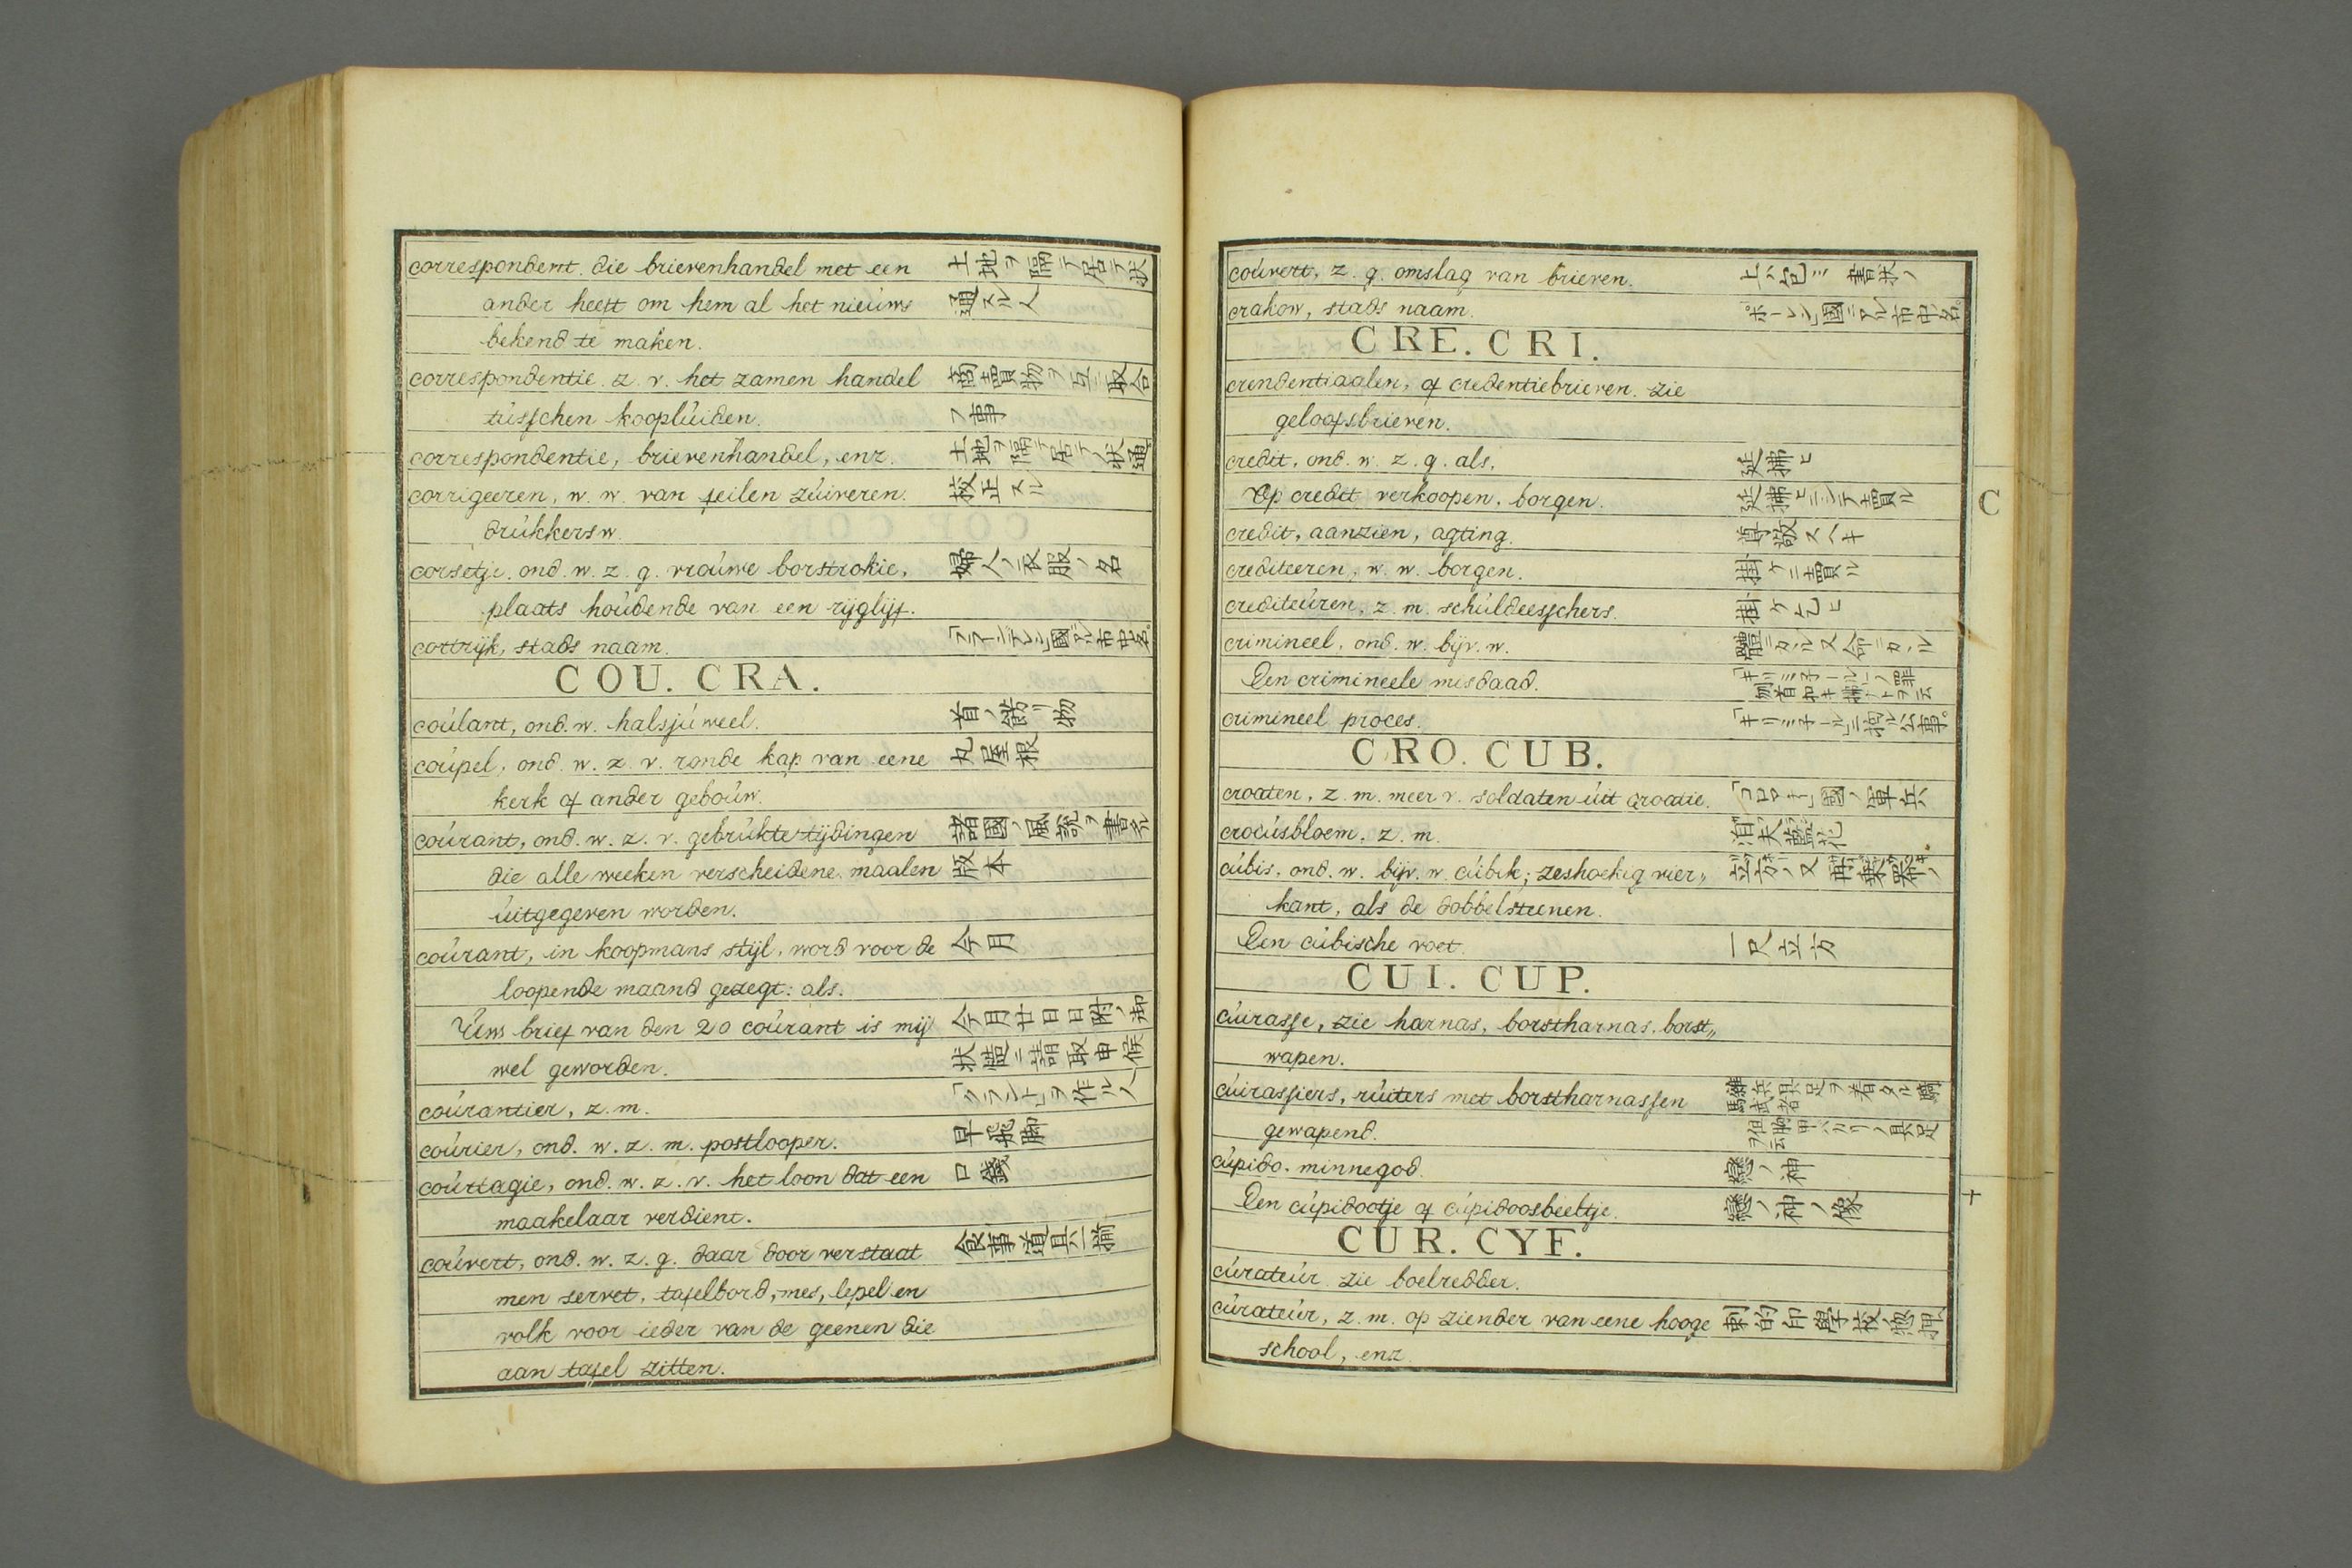 correspondent. die brievenhandel met een 土地ヲ隔テ居テ状
ander heeft om hem al het nieúws 通スル人
bekend te maken.
correspondentie. z. v. het zamen handel 商賣物ヲ互ニ取合
tússchen kooplúiden. フ事
correspondentie, brievenhandel, enz. 土地ヲ隔テ居テノ状通
corrigeeren, w. w. van feilen zúiveren. 校正スル
drúkkersw.
corsetje. ond. w. z. g. vroúwe borstrokie, 婦人ノ衣服ノ名
plaats hoúdende van een rijglijf.
cortrijk, stads naam.
COU. CRA.
coúlant, ond. w. halsjúweel. 首ノ餝リ物
coúpel, ond. w. z. v. ronde kap van eene 丸屋根
kerk of ander geboúw.
coúrant, ond. w. z. v. gedrúkte tijdingen 諸國ノ風説ヲ書タル
die alle weeken verscheidene maalen 版本
úitgegeven worden.
coúrant, in koopmans stijl, word voor de 今月
loopende maand gezegt: als.
Úws brief van den 20 coúrant is mij 今月廿日日附ノ御
wel geworden. 状慥ニ請取申候
coúrantier, z. m. 「クラント」ヲ作ル人
coúrier, ond. w. z. m. postlooper. 早飛脚
coúrtagie, ond. w. z. v. het loon dat een 口錢
maakelaar verdient.
coúvert, ond. w. z. g. daar door verstaat 食事道具一揃
men servet, tafelbord, mes, lepel en
volk voor ieder van de geenen die
aan tafel zitten.
coúvert, z. g. omslag van brieven. 上ハ包ミ書状ノ
crakow, stads naam. 「ポーレン」國ニアル市中ノ名。
CRE. CRI.
crendentiaalen, of credentiebrieven. zie
geloofsbrieven.
credit, ond. w. z. g. als, 延拂ヒ
Op credit verkoopen, borgen. 延拂ヒニシテ賣ル
credit, aanzien, agting. 尊敬スヘキ
crediteeren, w. w. borgen. 掛ケニ賣ル
crediteúren, z. m. schúldeesschers. 掛ケ乞ヒ
crimineel, ond. w. bijv. w.
Een crimineele misdaad.
crimineel proces.
CRO. CUB.
croaten, z. m. meer v. soldaten úit croatie. 國ノ軍兵
crocúsbloem. z. m. 洎夫藍花
cúbis, ond. w. bijv. w. cúbik; zeshoekig vier„
kant, als de dobbelsteenen.
Een cúbische voet. 一尺立方
CUI. CUP.
cúirasse, zie harnas, borstharnas, borst„
wapen.
cúirassiers, rúiters met borstharnassen
gewapend.
cúpido. minnegod. 戀ノ神
Een cúpidootje of cúpidoosbeeltje. 戀ノ神ノ像
CUR. CYF.
cúrateúr. zie boelredder.
cúrateúr, z. m. op ziender van eene hooge
school, enz.
C